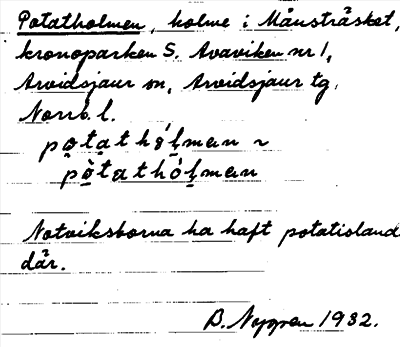 Potatholmen, holme i Mausträsket,
kronoparken S. Avaviken nr 1,
Arvidsjaur sn, Arvidsjaur tg,
Norrb. l.
pọ̀tathọ́ḷman ~
pọ̀tathọ́ḷman
Notviksborna ha haft potatisland
där.
B. Nygren 1932.